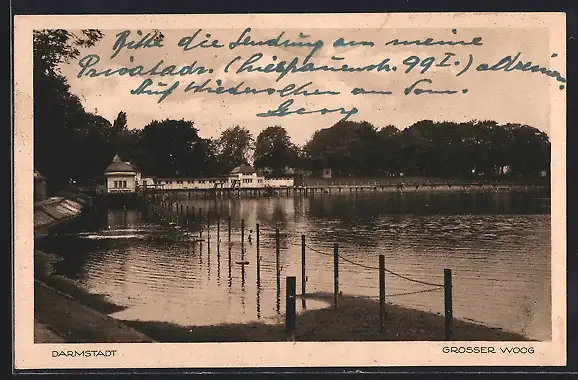 Bitte die Sendung an meine
Privatadr. (Liebfrauenstr. 99 I.) adressieren.
Auf Wiedersehen am Sonn.
Georg
DARMSTADT
GROSSER WOOG